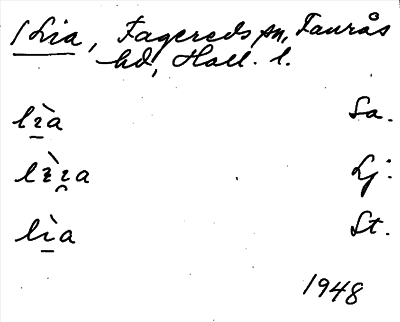 /Lia, Fagereds sn, Faurås
hd, Hall. l.
lɪ̠̀a Sa.
lɪ̀ɪ̯a Lj.
lì̠a St.
1948